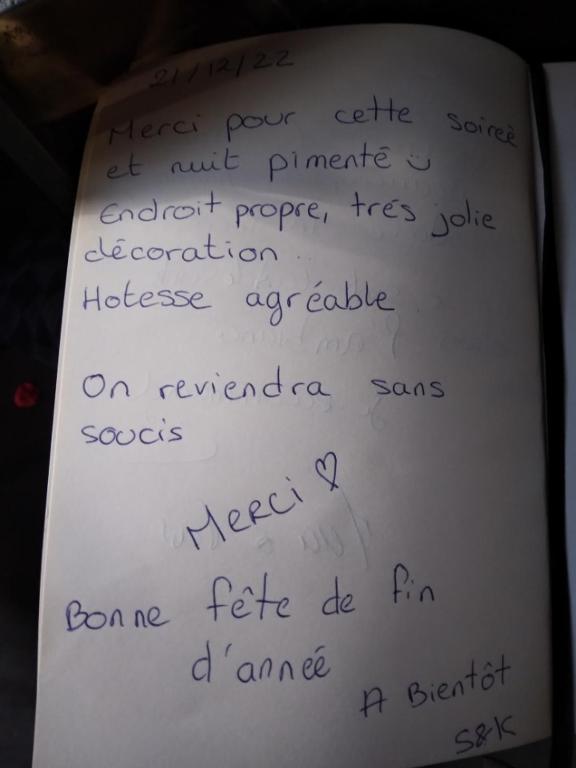 21/12/22
Merci pour cette soireé
et nuit pimenté ☺
Endroit propre, trés jolie
décoration
Hotesse agréable
On reviendra sans
soucis
Merci ♡
Bonne fête de fin
d'anneé
A Bientôt
S&K